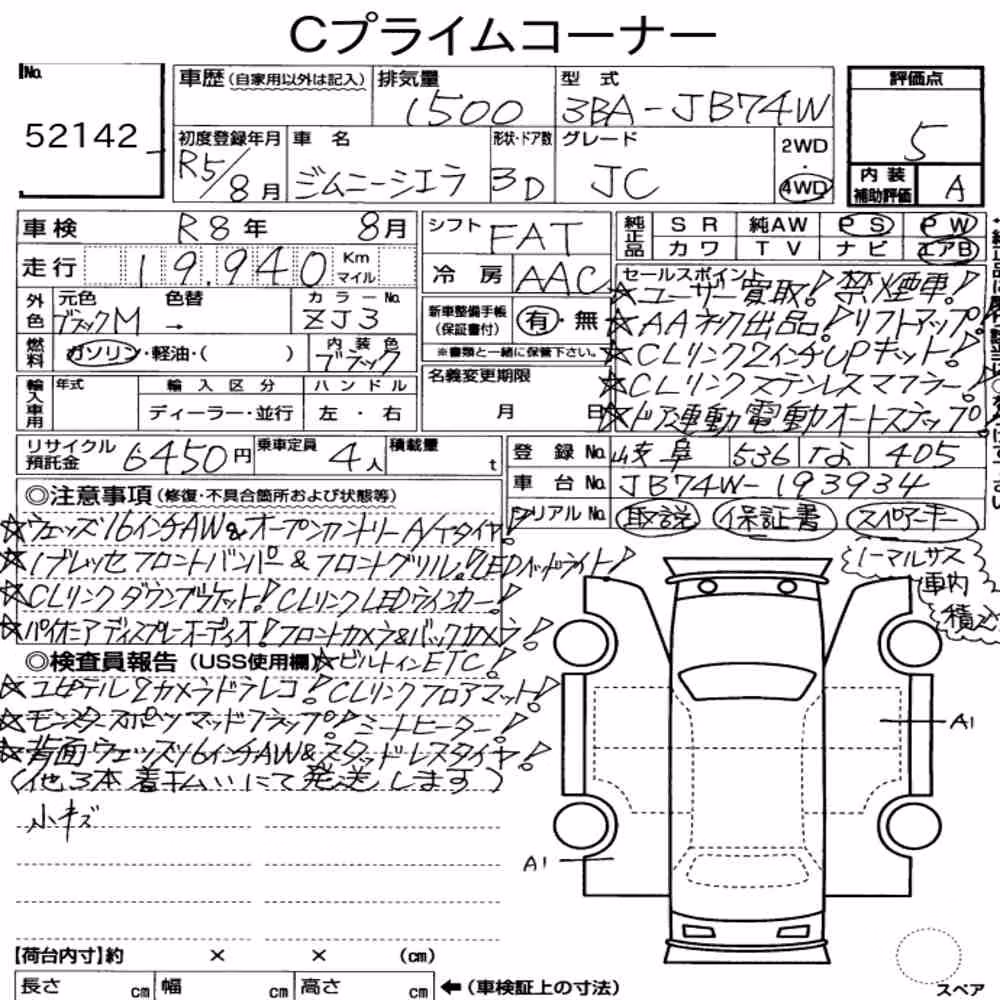 Cプライムコーナー
No.
52142
車歴(自家用以外は記入)
排気量
1500
型式
3BA-JB74W
評価点
5
初度登録年月
R5/8月
車名
ジムニーシエラ
形状・ドア数
3D
グレード
JC
2WD
・
4WD
内装
補助評価
A
車検
R8年 8月
走行
19,940
Km
マイル
外色
元色
ブラックM
色替
→
カラーNo.
ZJ3
燃料
ガソリン・軽油・( )
内装色
ブラック
輸入車用
年式
輸入区分
ハンドル
ディーラー・並行
左・右
シフト
FAT
冷房
AAC
新車整備手帳
(保証書付)
有・無
※書類と一緒に保管下さい。
名義変更期限
月 日
純正品
SR 純AW PS PW
カワ TV ナビ エアB
セールスポイント
☆ユーザー買取!禁煙車!
☆AAネク出品!リフトアップ!
☆CLリンク2インチUPキット!
☆CLリンクステンレスマフラー!
☆ドア連動電動オートステップ!
リサイクル
預託金
6450円
乗車定員
4人
積載量
t
登録No.
岐阜 536 な 405
車台No.
JB74W-193934
シリアルNo.
取説 保証書 スペアーキー
◎注意事項(修復・不具合箇所および状態等)
☆ウェッズ16インチAW&オープンカントリーA/Tタイヤ!
☆ノブレッセフロントバンパー&フロントグリル!LEDヘッドライト!
☆CLリンクダウンブラケット!CLリンクLEDウインカー!
☆パイオニアディスプレーオーディオ!フロントカメラ&バックカメラ!
◎検査員報告(USS使用欄)
☆ビルトインETC!
☆ユピテル2カメラドラレコ!CLリンクフロアマット!
☆モンスタースポーツマッドフラップ!シートヒーター!
☆背面ウェッズ16インチAW&スタッドレスタイヤ!
(他3本着払いにて発送します)
小キズ
ノーマルサス
車内
積込
A1
A1
【荷台内寸】約 × × (cm)
長さ cm 幅 cm 高さ cm ←(車検証上の寸法)
スペア